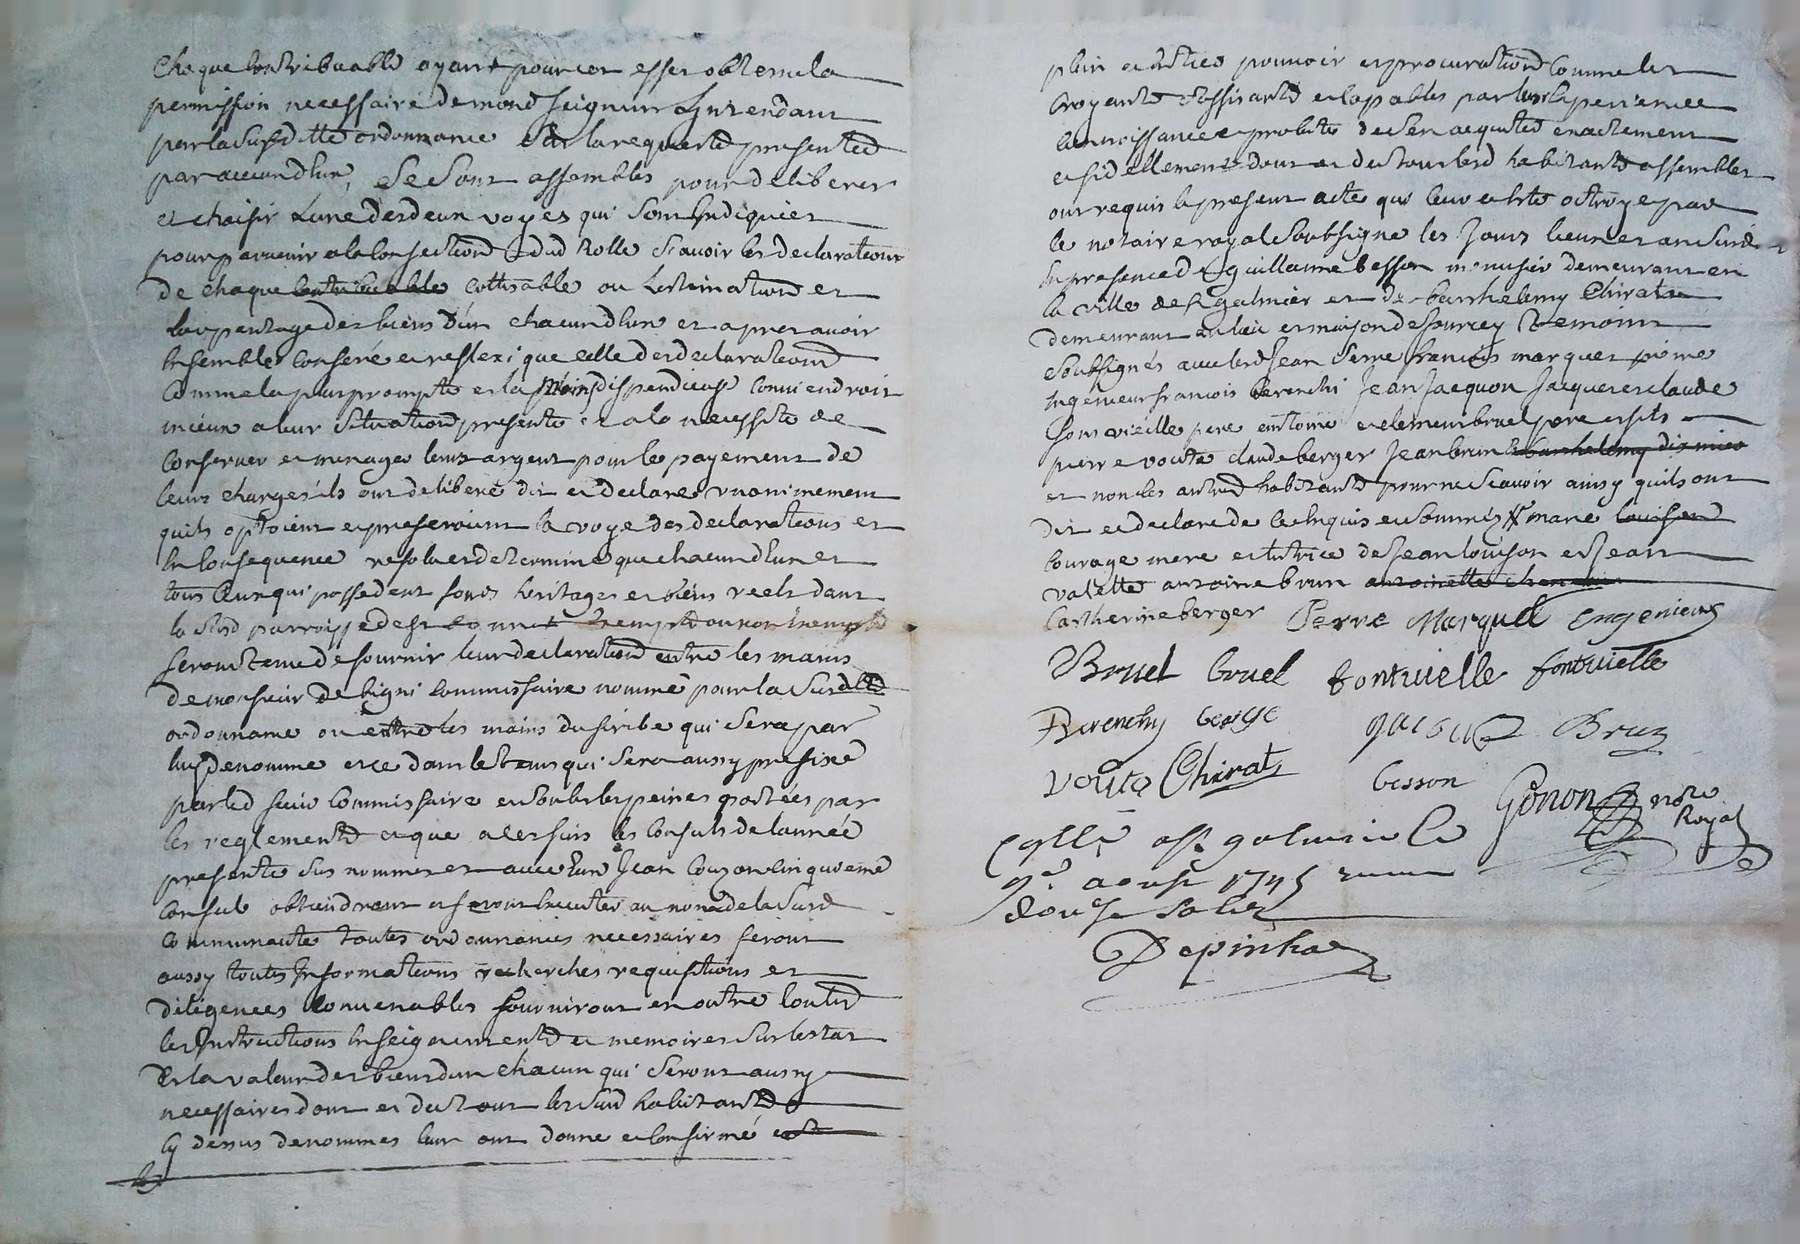 Chaque Contribuable ayant pour cet effet obtenu la
permission necessaire de mond seigneur Lyntendant
par la Susditte ordonnance Sur la requette presentée
par aucun d'eux, Se Sont assemblés pour deliberer
et choisir L'une des deux voyes qui Sont Indiquées
pour parvenir a la Confection dud Rolle Scavoir les declarations
de chaque contribuable cottisable ou L'estimation et
larpentage des biens d'un chacun d'eux et apres avoir
Ensemble Conferé et reflexi que celle des declarations
Comme la plus prompte et la moins dispendieuse Conviendroit
mieux a leur Situation presente et a la necessité de
Conserver et menager leurs argent pour le payement de
leurs charges ils ont deliberé dit et declaré unanimement
quils optoient et preferoient la voye des declarations et
En Consequence resolu et determiné que chacun d'eux et
tous Ceux qui possedent fonds heritages et biens reels dans
la Susd parroisse de st exempts ou non exempts
Seront tenu de fournir leur declaration entre les mains
de monsieur de bigni Commissaire nommé pour la Susd
ordonnance ou entre les mains du scribe qui Sera par
luy denommé et ce dans le tems qui Sera aussy prefixé
par led sieur Commissaire et Sous les peines portées par
les reglements et que a ces fins les Consuls de lannée
presente Sus nommes et avec eux Jean Couzon Cinquieme
Consul obtiendront et feront Executer au nom de la Susd
Communauté toutes ordonnances necessaires feront
aussy toutes Informations recherches requisitions et
diligences Convenables fourniront en outre toutes
les Instructions Enseignements et memoires Sur lestat
Et la valeur des biens dun chacun qui Seront aussy
necessaires dont et du tout les Susd habitants
Cy dessus denommes leur ont donné et Confirmé
plein et entier pouvoir et procuration Comme les
Croyants Suffisants et Capables par leur Experience
Connoissance et probité de s'en acquitter exactement
et fidellement dont et du tout lesd habitants assembles
ont requis le present acte qui leur a esté octroyé par
le notaire royal Soubsigné les Jours lieu et an Susd
En presence de guillaume besson menusier demeurant en
la ville de st galmier et de barthelemy Chirat
demeurant au lieu et maison de fourrey temoins
Soubsignés avec lesd Jean Serre francois marquet pierre
Ingenieur francois berenchi Jean Jacquon Jacques et claude
fontvieille pere antoine et clement bruel pere et fils
pierre voute claude berger Jean brun barthelemy dismier
et non les autres habitants pour ne Scavoir ainsy quils ont
dit et declaré de ce Enquis et Sommés marie louison
Courage mere et tutrice de Jean louison et Jean
valette antoine brun antoinette
Catherine berger Perre Marquet engenieus
Bruel bruel fontvielle fontvielle
Berenchy berge Jacquon Brun
Voute Chirat besson Gonon nore
Royal
Collé a st galmier le
9e aoust 1745 recu
douze sols
Depinhac